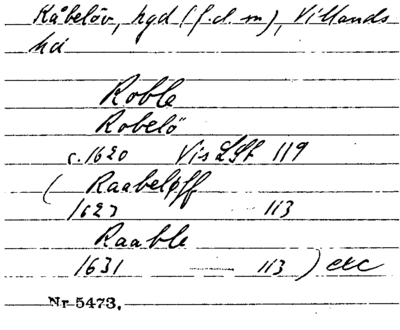 Råbelöv, hgd (f.d.m), Villands
hd
Roble
Robelö
c.1620 Vis LSt 119
( Raabeløff
1623 — 113
Raable
1631 — 113 ) etc
Nr 5473.